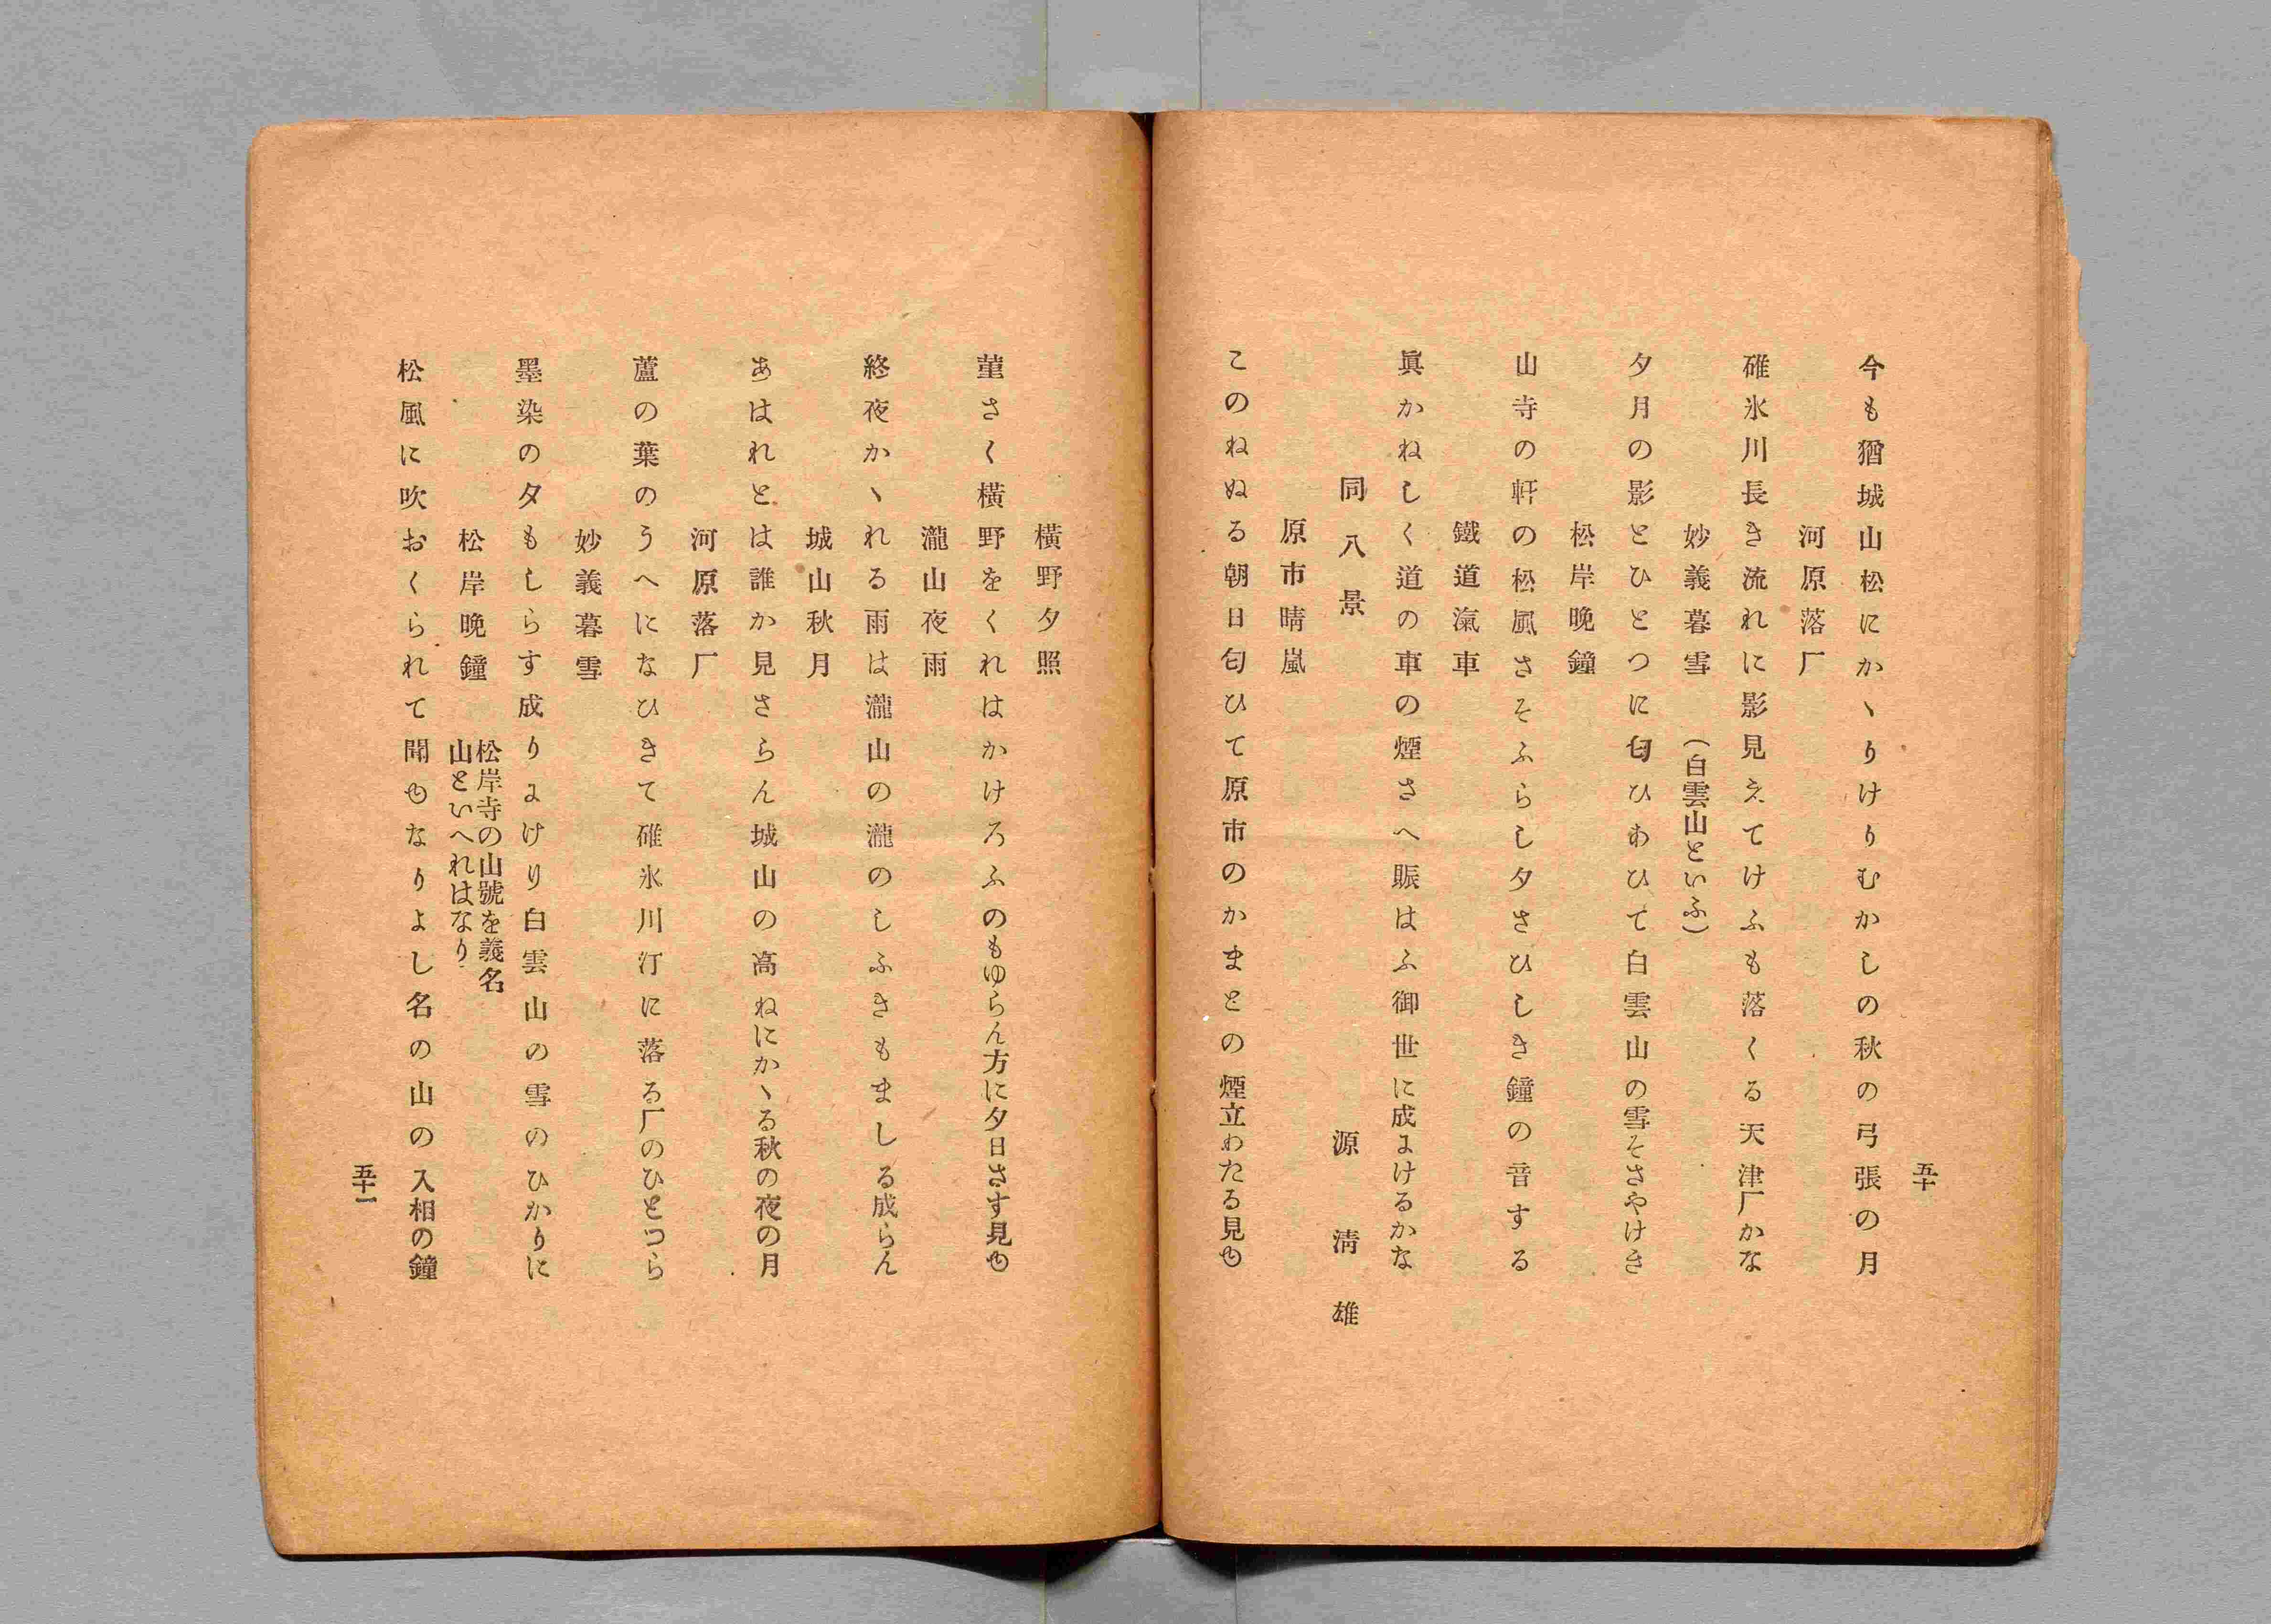 五十
今も猶城山松にかゝりけりむかしの秋の弓張の月
河原落厂
碓氷川長き流れに影見えてけふも落くる天津厂かな
妙義暮雪　（白雲山といふ）
夕月の影とひとつに匂ひわひて白雲山の雪そさやけき
松岸晩鐘
山寺の軒の松風さそふらし夕さひしき鐘の音する
鐵道滊車
眞かねしく道の車の煙さへ賑はふ御世に成にけるかな
同八景　源淸雄
原市晴嵐
このねぬる朝日匂ひて原市のかまとの煙立わたる見ゆ
橫野夕照
菫さく橫野をくれはかけろふのもゆらん方に夕日さす見ゆ
瀧山夜雨
終夜かゝれる雨は瀧山の瀧のしふきもましる成らん
城山秋月
あはれとは誰か見さらん城山の高ねにかゝる秋の夜の月
河原落厂
蘆の葉のうへになひきて碓氷川汀に落る厂のひとつら
妙義暮雪
墨染の夕もしらす成りにけり白雲山の雪のひかりに
松岸晩鐘　松岸寺の山號を義名
山といへれはなり
松風に吹おくられて聞ゆなりよし名の山の入相の鐘
五十一